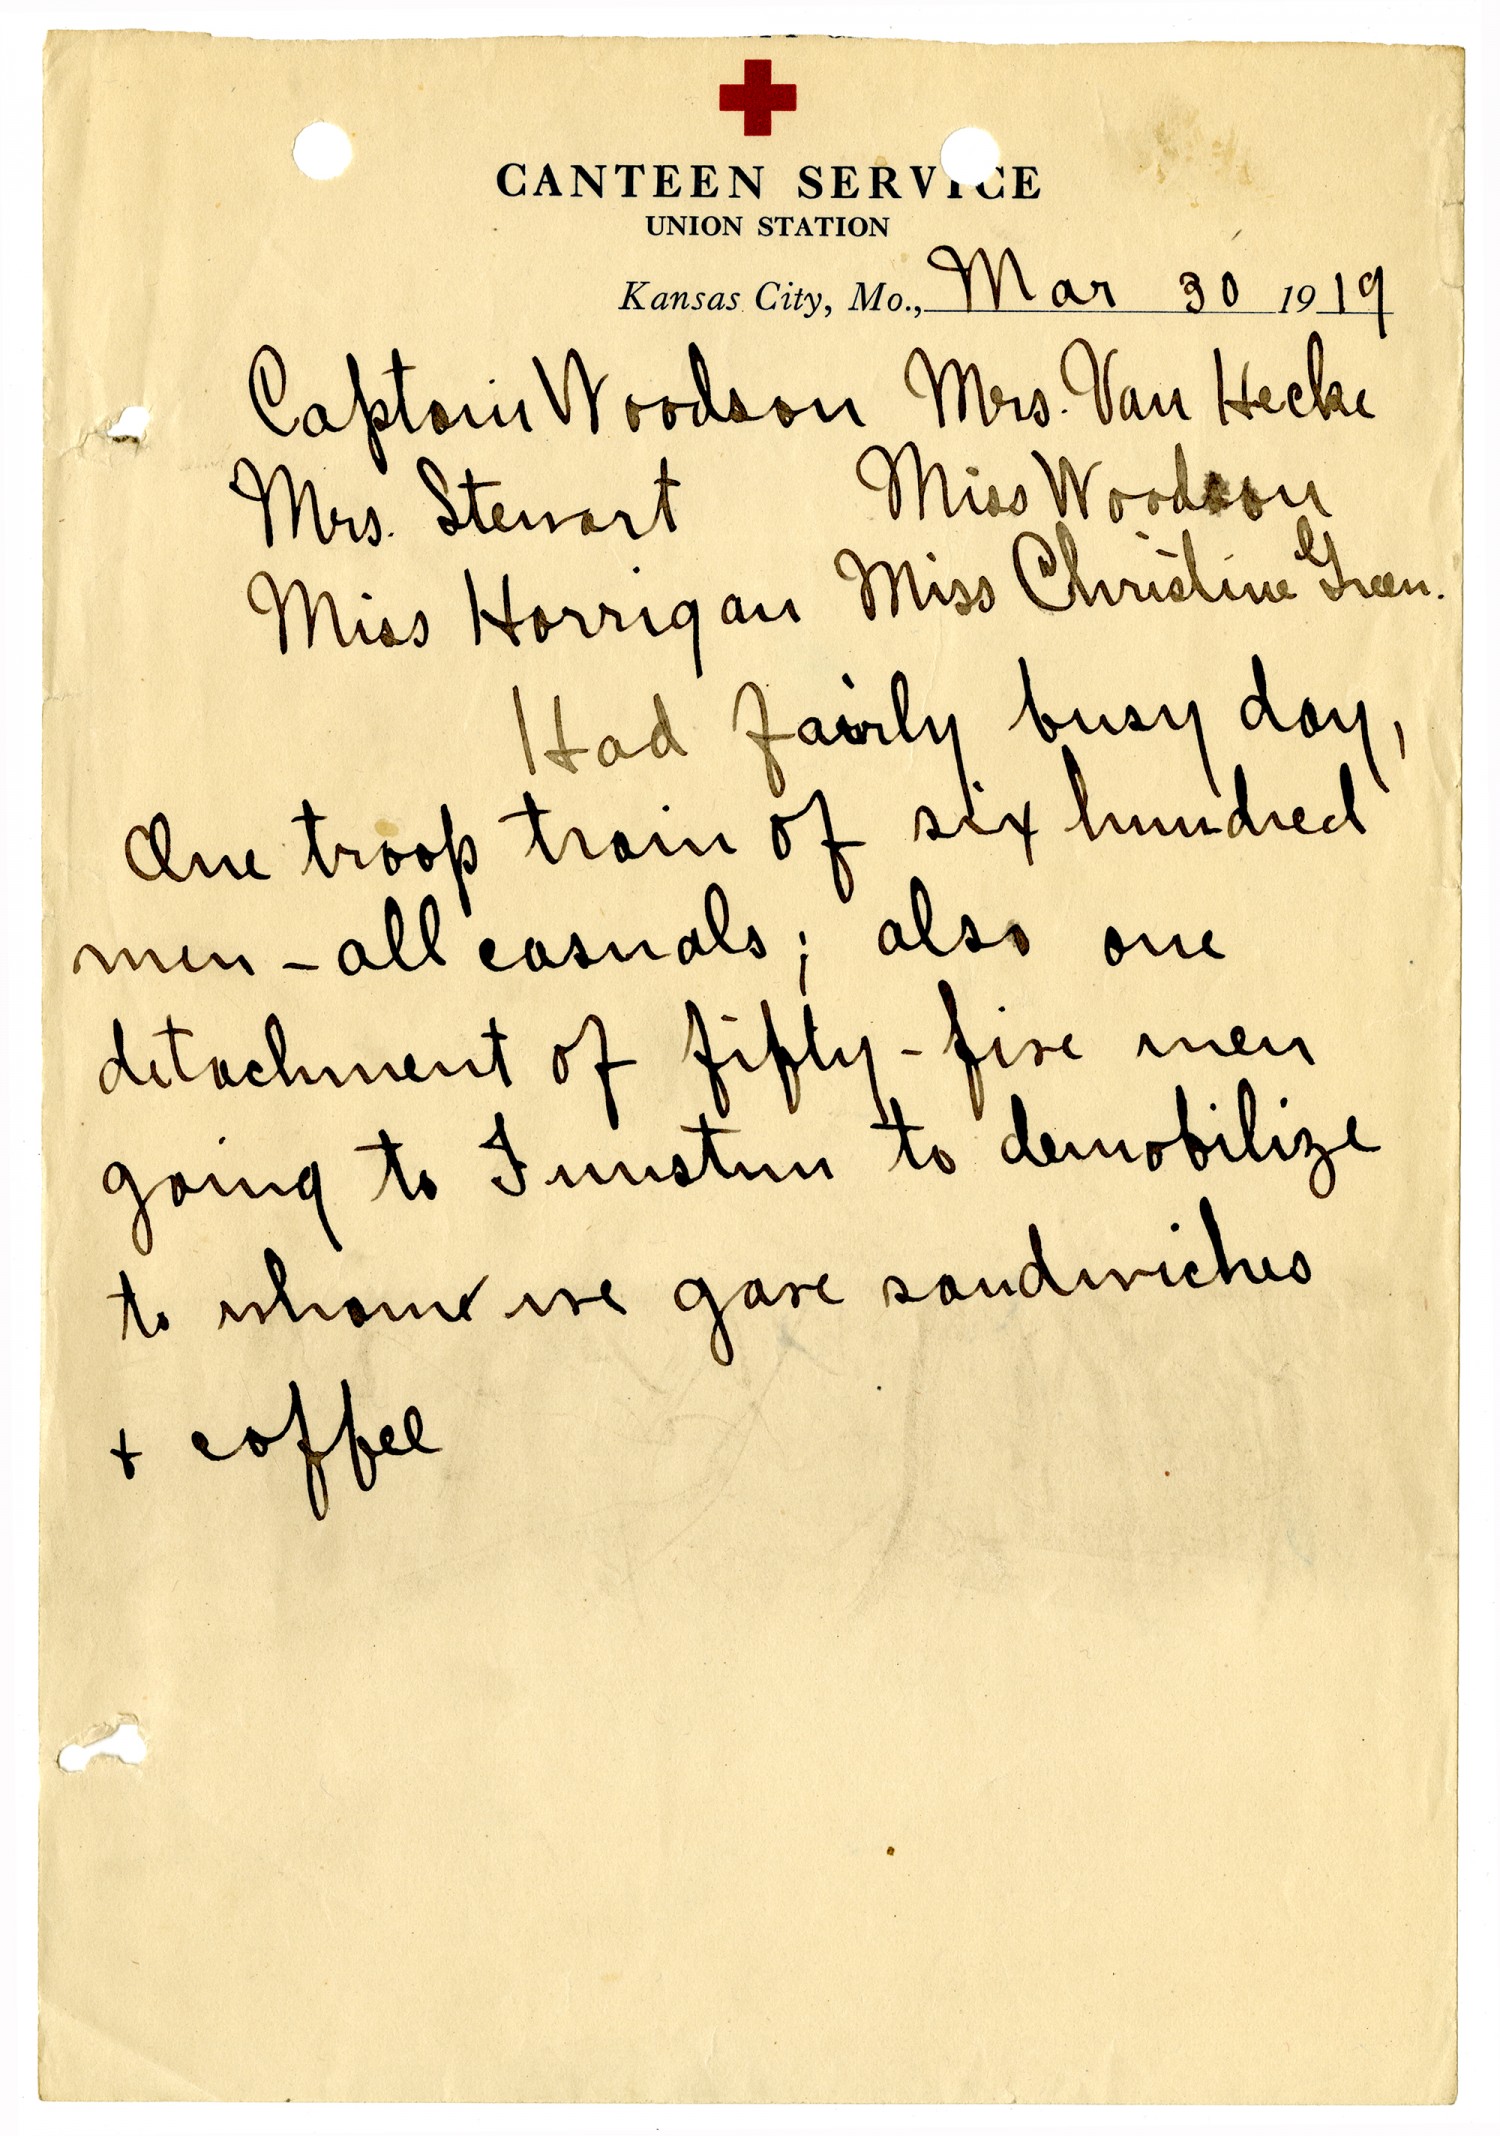 CANTEEN SERVICE
UNION STATION
Kansas City, Mo., Mar 30 1919
Captain Woodson Mrs. Van Hecke
Mrs. Stewart Miss Woodson
Miss Horrigan Miss Christine Green.
Had fairly busy day,
One troop train of six hundred
men - all casuals; also one
detachment of fifty-five men
going to Funston to demobilize
to whom we gave sandwiches
+ coffee